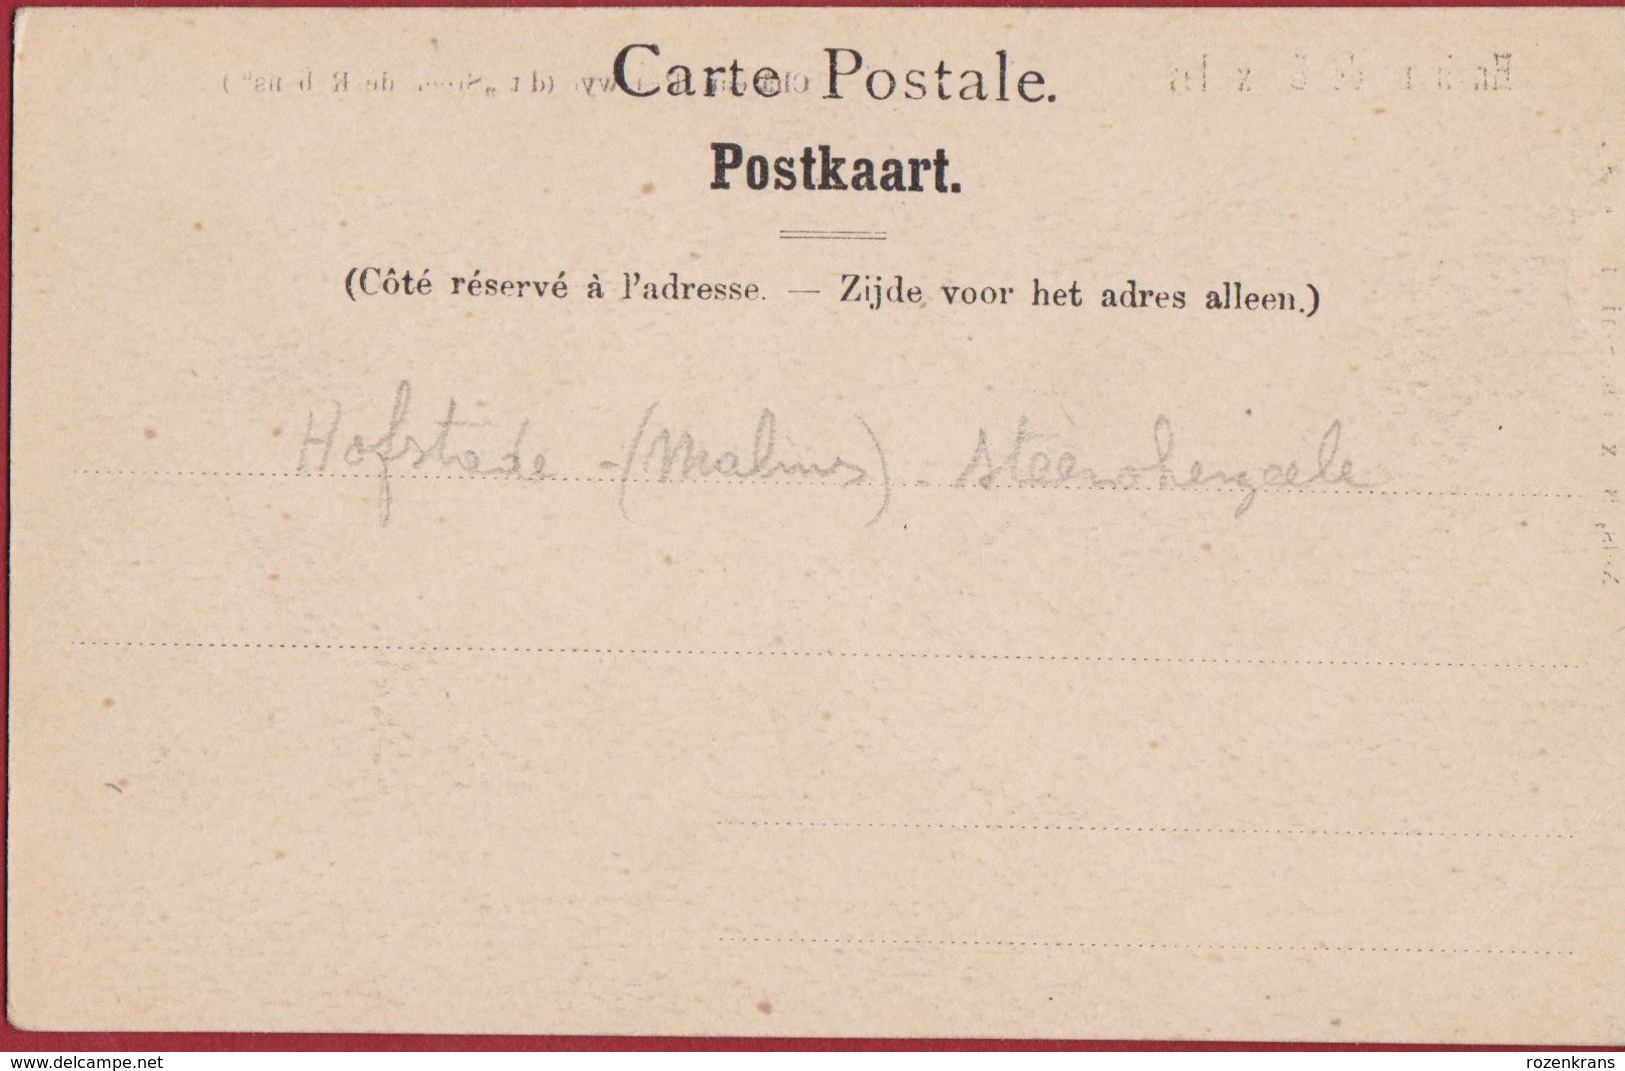 Carte Postale.
Postkaart.
(Côté réservé à l'adresse. — Zijde voor het adres alleen.)
Hofstade - (Malines) - Steenokerzeele
www.delcampe.net
rozenkrans